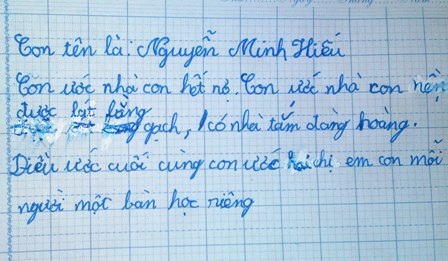 Con tên là: Nguyễn Minh Hiếu
Con ước nhà con hết nợ. Con ước nhà con nền
được lát bằng gạch, có nhà tắm đàng hoàng.
Điều ước cuối cùng con ước hai chị em con mỗi
người một bàn học riêng